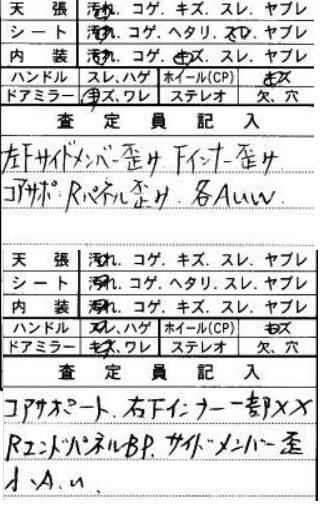 天張 汚れ. コゲ. キズ. スレ. ヤブレ
シート 汚れ. コゲ. ヘタリ. スレ. ヤブレ
内装 汚れ. コゲ. キズ. スレ. ヤブレ
ハンドル スレ、ハゲ ホイール(CP) キズ
ドアミラー キズ、ワレ ステレオ 欠、穴
査定員記入
左Fサイドメンバー歪み. Fインナー歪み
コアサポ. Rパネル歪み. 各AUW
天張 汚れ. コゲ. キズ. スレ. ヤブレ
シート 汚れ. コゲ. ヘタリ. スレ. ヤブレ
内装 汚れ. コゲ. キズ. スレ. ヤブレ
ハンドル スレ、ハゲ ホイール(CP) キズ
ドアミラー キズ、ワレ ステレオ 欠、穴
査定員記入
コアサポート. 右Fインナー一部XX
RエンドパネルBP. サイドメンバー歪
小. A. U.